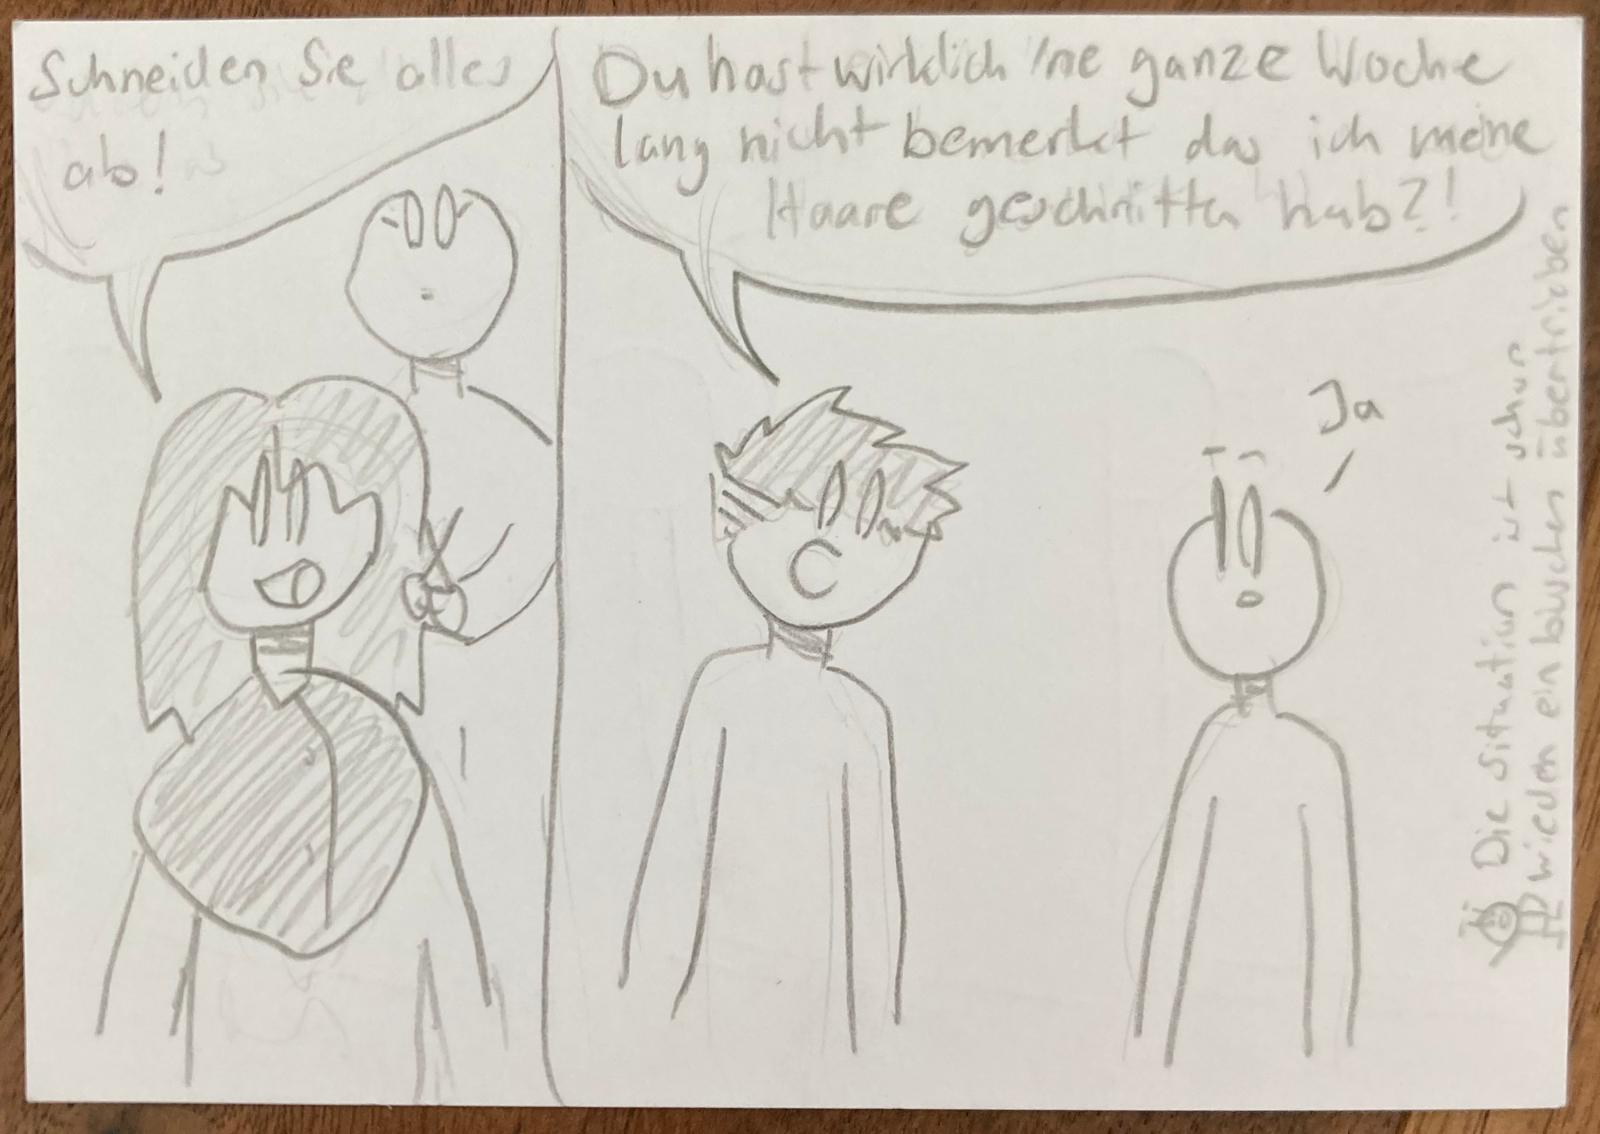 Schneiden Sie alles
ab!
Du hast wirklich 'ne ganze Woche
lang nicht bemerkt das ich meine
Haare geschnitten hab?!
Ja
Die situation ist schon
wieder ein bisschen übertrieben